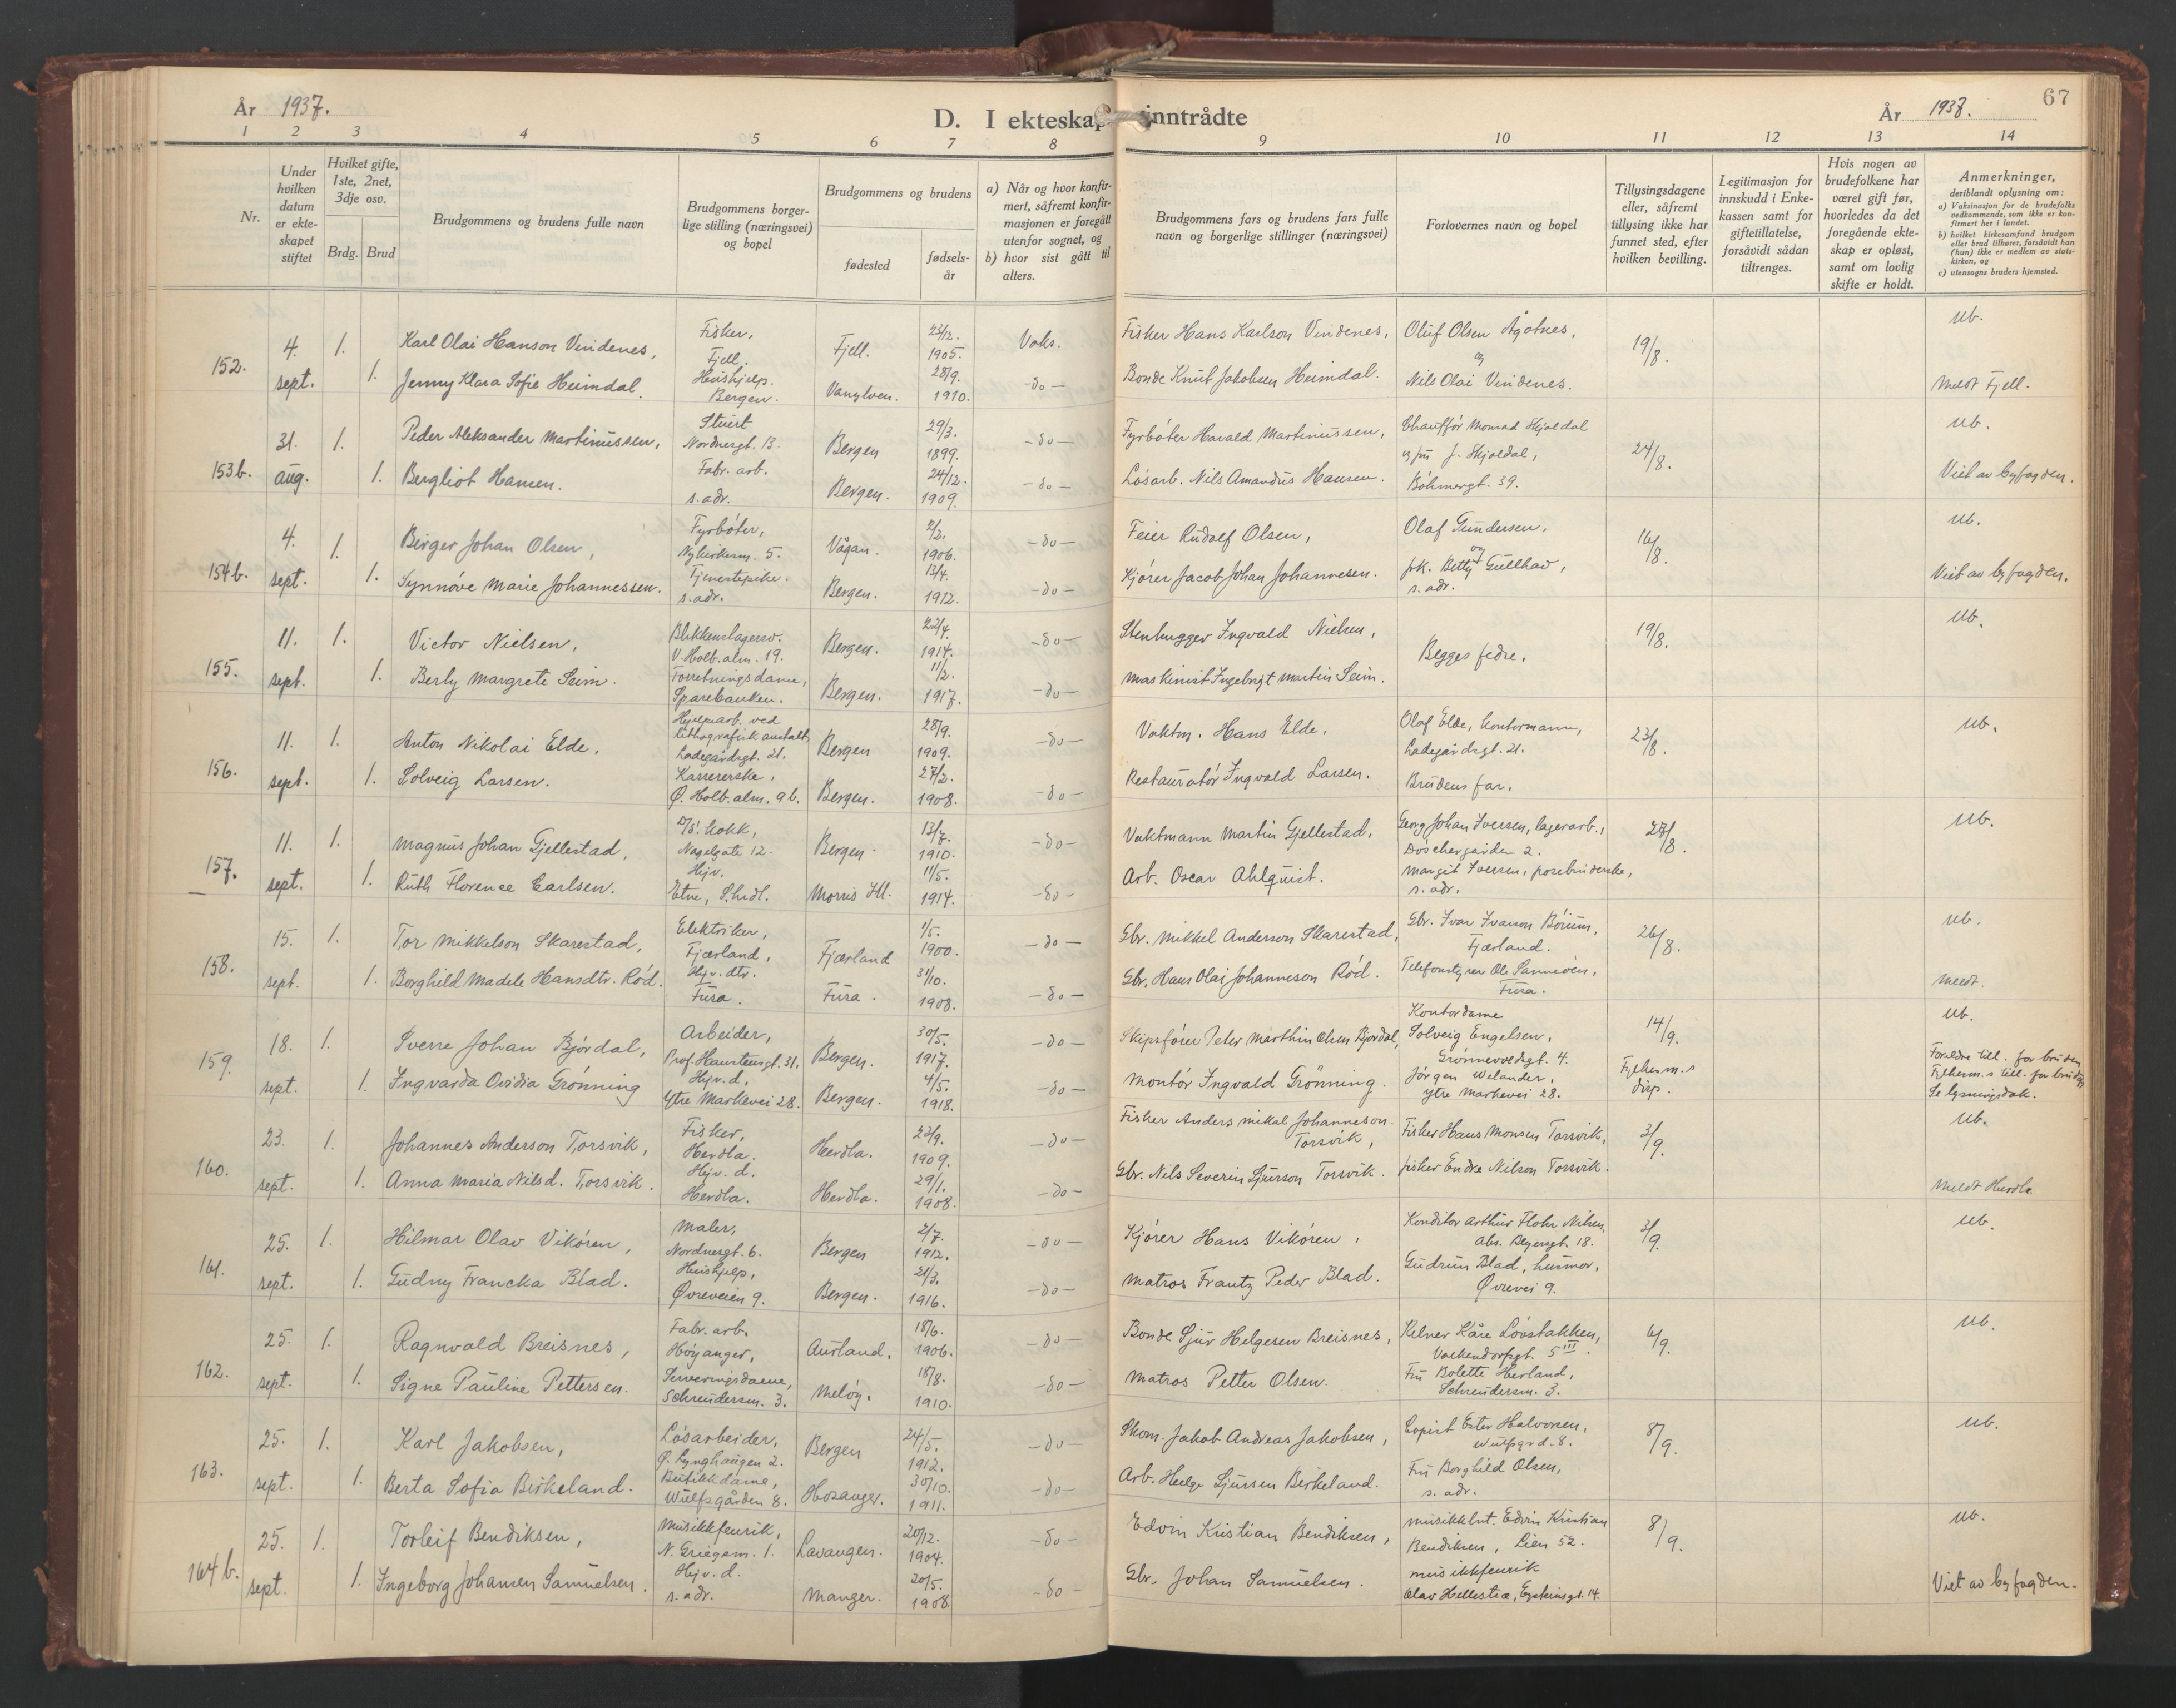 År 1937.
D. I ekteskap inntrådte
År 1937.
67
1 2 3 4 5 6 7 8 9 10 11 12 13 14
Nr.
Under hvilken datum er ekteskapet stiftet
Hvilket gifte, 1ste, 2net, 3dje osv.
Brdg. Brud
Brudgommens og brudens fulle navn
Brudgommens borgerlige stilling (næringsvei) og bopel
Brudgommens og brudens
fødested
fødselsår
a) Når og hvor konfirmert, såfremt konfirmasjonen er foregått utenfor sognet, og
b) hvor sist gått til alters.
Brudgommens fars og brudens fars fulle navn og borgerlige stillinger (næringsvei)
Forlovernes navn og bopel
Tillysingsdagene eller, såfremt tillysing ikke har funnet sted, efter hvilken bevilling.
Legitimasjon for innskudd i Enkekassen samt for giftetillatelse, forsåvidt sådan tiltrenges.
Hvis nogen av brudefolkene har været gift før, hvorledes da det foregående ekteskap er opløst, samt om lovlig skifte er holdt.
Anmerkninger, deriblandt oplysning om:
a) Vaksinasjon for de brudefolks vedkommende, som ikke er konfirmert her i landet.
b) hvilket kirkesamfund brudgom eller brud tilhører, forsåvidt han (hun) ikke er medlem av statskirken, og
c) utensogns bruders hjemsted.
152. 4. sept. 1. Karl Olai Hanson Vindenes, Fisker, Fjell. Fjell. 23/12. 1905. Voks. Fisker Hans Karlson Vindenes, Oluf Olsen Ågotnes, og 19/8. Ub.
1. Jenny Klara Sofie Heimdal. Hushjelp. Bergen. Vanylven. 28/9. 1910. -do- Bonde Knut Jakobsen Heimdal. Nils Olai Vindenes. Meldt Fjell.
153b. 31. aug. 1. Peder Aleksander Martinussen, Stuert Nordnesgt. 13. Bergen 29/3. 1899. -do- Fyrbøter Harald Martinussen, Chauffør Monrad Skjoldal og fru J. Skjoldal, 24/8. Ub.
1. Bergliot Hansen. Fabr. arb. s. adr. Bergen. 24/12. 1909. -do- Løsarb. Nils Amandus Hansen. Bøhmergt. 39. Viet av byfogden.
154b. 4. sept. 1. Birger Johan Olsen, Fyrbøter, Nykirkesm. 5. Vågan. 2/2. 1906. -do- Feier Rudolf Olsen, Olaf Gundersen, og 16/8. Ub.
1. Synnøve Marie Johannessen. Tjenestepike. s. adr. Bergen. 13/4. 1912. -do- Kjører Jacob Johan Johannesen. frk. Betty Gullhav, s. adr. Viet av byfogden.
155. 11. sept. 1. Victor Nielsen, Blikkenslagersv. V. Holb. alm. 19. Bergen. 22/4. 1914. -do- Stenhugger Ingvald Nielsen, Begges fedre. 19/8. Ub.
1. Berly Margrete Seim. Forretningsdame, Sparebanken. Bergen. 11/2. 1917. -do- Maskinist Ingebrigt Martin Seim.
156. 11. sept. 1. Anton Nikolai Elde, Hjelpearb. ved lithografisk anstalt, Ladegårdsgt. 21. Bergen 28/9. 1909. -do- Vaktm. Hans Elde. Olaf Elde, kontormann, Ladegårdsgt. 21. 23/8. Ub.
1. Solveig Larsen. Kassererske, Ø. Holb. alm. 9b. Bergen. 27/2. 1908. -do- Restauratør Ingvald Larsen. Brudens far.
157. 11. sept. 1. Magnus Johan Gjellestad, D/S. kokk, Nagelgate 12. Bergen. 13/7. 1910. -do- Vaktmann Martin Gjellestad, Georg Johan Iversen, lagerarb., Dóschergården 2. 27/8. Ub.
1. Ruth Florence Carlsen. Hjv. Etne, S.hrdl. Morris Ill. 11/5. 1914. -do- Arb. Oscar Ahlquist. Margit Iversen, posebinderske, s. adr.
158. 15. sept. 1. Tor Mikkelson Skarestad, Elektriker, Fjærland, Fjærland 1/5. 1900. -do- Gbr. Mikkel Anderson Skarestad, Gbr. Ivar Ivarson Bøium, Fjærland. 26/8. Ub.
1. Borghild Madele Hansdtr. Rød. Hjv. dtr. Fusa. Fusa. 31/10. 1908. -do- Gbr. Hans Olai Johanneson Rød. Telefonstyrer Ole Samnøen, Fusa. Meldt.
159. 18. sept. 1. Sverre Johan Bjørdal, Arbeider, Prof. Hansteensgt. 31. Bergen. 30/5. 1917. -do- Skipsfører Peter Marthin Olsen Bjordal, Kontordame Solveig Engelsen, Grønnevollsgt. 4. 14/9. Ub.
1. Ingvarda Ovidia Grønning Hjv. d. Ytre Markevei 28. Bergen. 4/5. 1918. -do- Montør Ingvald Grønning. Jørgen Welander, Ytre Markevei 28. Fylkesm.s disp. Foreldre till. for bruden Fylkesm.s till. for brudg. Se lysningsdok.
160. 23. sept. 1. Johannes Anderson Torsvik, Fisker, Herdla. Herdla. 23/9. 1909. -do- Fisker Anders Mikal Johanneson Torsvik, Fisker Hans Monsen Torsvik, 3/9. Ub.
1. Anna Maria Nilsd. Torsvik. Hjv. d. Herdla. Herdla. 29/1. 1908. -do- Gbr. Nils Severin Sjurson Torsvik. fisker Endre Nilson Torsvik. Meldt Herdla
161. 25. sept. 1. Hilmar Olav Vikøren, Maler, Nordnesgt. 6. Bergen 2/7. 1912. -do- Kjører Hans Vikøren, Konditor Arthur Flohr Nilsen, Abs. Beyersgt. 18. 3/9. Ub.
1. Gudny Francka Blad. Hushjelp, Øvreveien 9. Bergen. 21/3. 1916. -do- Matros Frantz Peder Blad. Gudrun Blad, husmor, Øvrevei 9.
162. 25. sept. 1. Ragnvald Breisnes, Fabr. arb. Høyanger, Aurland. 18/6. 1906. -do- Bonde Sjur Helgesen Breisnes, Kelner Kåre Løvstakken, Valkendorfsgt. 5 III. 6/9. Ub.
1. Signe Pauline Pettersen. Serveringsdame, Schreudersm. 3. Meløy. 18/8. 1910. -do- Matros Petter Olsen. Fru Bolette Herland, Schreudersm. 3.
163. 25. sept. 1. Karl Jakobsen, Løsarbeider, Ø. Lynghaugen 2. Bergen 24/5. 1912. -do- Skom. Jakob Andreas Jakobsen, Copist Ester Halvorsen, Wulfsgrd. 8. 8/9. Ub.
1. Berta Sofia Birkeland. Butikkdame, Wulfsgården 8. Hosanger. 30/10. 1911. -do- Arb. Helge Sjursen Birkeland. Fru Borghild Olsen, s. adr.
164b. 25. sept. 1. Torleif Bendiksen, Musikkfenrik, N. Griegsm. 1. Lavangen. 20/12. 1904. -do- Edvin Kristian Bendiksen, Musikkløt. Edvin Kristian Bendiksen, Lien 52. 8/9. Ub.
1. Ingeborg Johansen Samuelsen. Hjv. d. s. adr. Manger. 20/5. 1908 -do- Gbr. Johan Samuelsen. musikkfenrik Olav Hellestræ, Eysteinsgt. 14. Viet av byfogden.